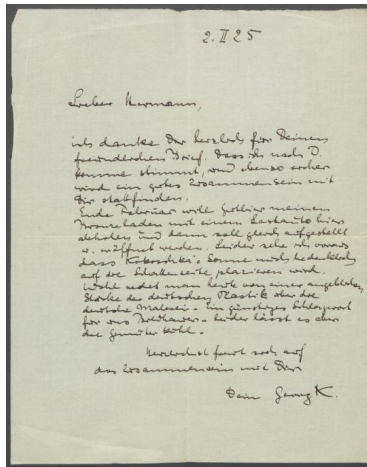 2. II 25
Lieber Hermann,
ich danke Dir herzlich für Deinen
freundlichen Brief. Dass ich nach D.
komme stimmt, und ebenso sicher
wird ein gutes Zusammensein mit
Dir stattfinden.
Ende Februar will meinen
mit einem Lastauto hier
abholen und dann soll gleich aufgestellt
u. eröffnet werden. Leider sehe ich voraus
dass Kokoschka's Sonne mich bedenklich
auf die Schattenseite plazieren wird.
Wohl redet man heute von einer angeblichen
Stärke der deutschen Plastik über die
deutsche Malerei. Ein günstiges Schlagwort
für uns Bildhauer. Leider lässt es aber
die Gemüter kühl.
Herzlichst freut sich auf
das Zusammensein mit Dir
Dein Georg K.